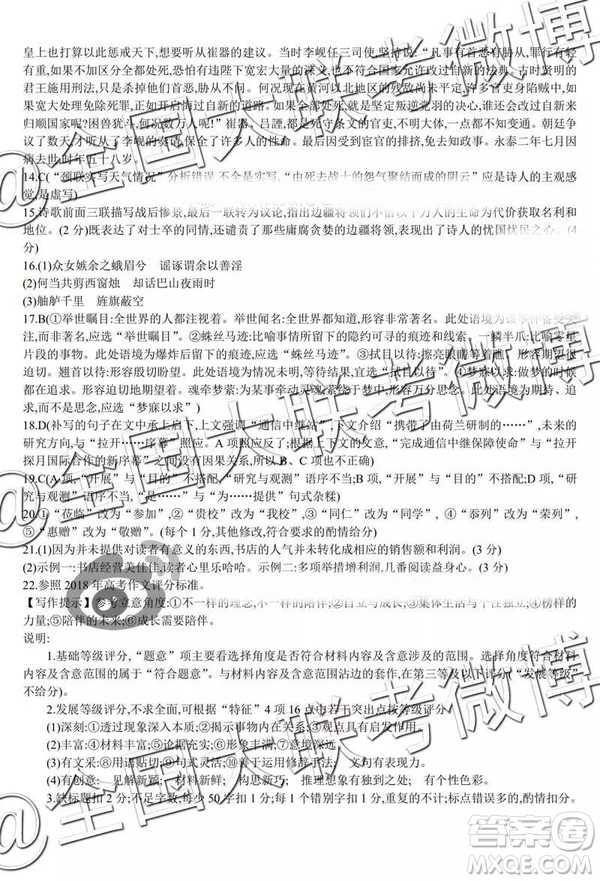 皇上也打算以此惩戒天下,想要听从崔器的建议。当时李岘任三司使,坚持说:“凡事有首恶有胁从,罪行有轻
有重,如果不加区分全都处死,恐怕有违陛下宽宏大量的深义,也不符合国家允许改过自新的法典。古时贤明的
君王施用刑法,只是杀掉他们首恶,胁从不问。何况河南以北地区的残敌尚未平定,许多官吏身陷贼中,如
果宽大处理免除死罪,正好开启改过自新的道路。如果全部处死,是坚定叛逆死守的信念,谁还会来
归顺国家呢?困兽犹斗,何况数万人呢!”崔器、吕諲,都是死守条文的官吏,不明大体,不知变通。朝廷争
议了数天,才听从了李岘的奏请,保全了许多人的性命。后因受宦官的排挤,免为太子詹事。永泰二年七月因
病去世,时年五十八岁。
14.C(“颈联实写天气情况”分析错误,不全是实写,“由死去战士的怨气聚结而成的阴云”应是诗人的主观感
觉,是虚写)
15.诗歌前面三联描写战后惨景,最后一联转为议论,指出边疆将领们不惜以千万人的生命为代价获取名利和
地位。(2 分)既表达了对士卒的同情,还谴责了那些庸腐贪婪的边疆将领,表现了诗人的忧国忧民之心。(4
分)
16.(1)众女嫉余之蛾眉兮 谣诼谓余以善淫
(2)何当共剪西窗烛 却话巴山夜雨时
(3)舳舻千里 旌旗蔽空
17.B(①举世瞩目:全世界的人都注视着。举世闻名:全世界都知道,形容非常著名。此处语境为该事件备受
注,而非著名,应选“举世瞩目”。②蛛丝马迹:比喻事情所留下的隐约可寻的痕迹和线索。一鳞半爪:比喻零星
片段的事物。此处语境为爆炸后留下的痕迹,应选“蛛丝马迹”。③拭目以待:擦亮眼睛等待着。形容期望
迫切。翘首以待:形容殷切期望。此处语境为情况未明,等待结果,应选“拭目以待”。④梦寐以求:做梦的时候
追求。形容迫切地期望着。魂牵梦萦:为某事牵动人灵魂,萦绕于梦中,形容万分思念。此处语境为期待、追
求,而不是思念,应选“梦寐以求”)
18.D(补写的句子在文中承上启下,上文强调“通信中继站”,下文介绍“携带了由荷兰研制的……”,未来的
研究方向,与“拉开……序幕”照应。A 项照应不当;根据上下文的文意,“完成通信中继保障使命”与“拉开
探月国际合作的新序幕”之间没有因果关系,所以 B、C 项不也可)
19.C(A 项,“开展”与“目的”不搭配,“研究与观测”语序不当;B 项,“开展”与“目的”不搭配;D 项,“研
究与观测”语序不当,“是……”与“为……提供”句式杂糅)
20.①“莅临”改为“参加”,②“贵校”改为“我校”,③“同仁”改为“同学”,④“忝列”改为“荣列”,
⑤“惠赠”改为“敬赠”。(每个 1 分,其他修改,符合要求的酌情给分)
21.(1)因为并未提供对读者有意义的东西,书店的人气并未转化成销售额和利润。(3 分)
(2)示例一:书店经营美佳佳,读者心里乐哈哈。示例二:多项举措增利润,几番阅读益身心。(3 分)
22.参照 2018 年高考作文评分标准。
【写作提示】参考立意角度:①不一样的理念,不一样的陪伴;②自我成长与陪伴;③集体生活与自我;④榜样的
力量;⑤陪伴的未来;⑥成长需要陪伴。
说明:
1.基础等级评分,“题意”项主要看选择角度是否符合材料内容及含意涉及的范围。选择的角度与材料
内容及含意的范围所属于“符合题意”。与材料内容及含意的范围沾边的套作,在第三等及以下评分(“发展等级”
不给分)。
2.发展等级评分,不求全面,可根据“特征”4 项 16 点中若干突出点按等级评分。
(1)深刻:①透过现象深入本质;②揭示事物内在关系;③观点具有启发作用。
(2)丰富:④材料丰富;⑤论据充实;⑥形象丰满;⑦意境深远。
(3)有文采:⑧用词贴切;⑨句式灵活;⑩善于运用修辞手法; 文句有表现力。
(4)有创意: 见解新颖; 材料新鲜; 构思新巧; 推理想象有独到之处; 有个性色彩。
3.缺标题扣 2 分;不足字数,每少 50 字扣 1 分;每 1 个错别字扣 1 分,重复不计;标点错误多的,酌情扣分。
@全国大联考微博
答案圈
MXQE.COM